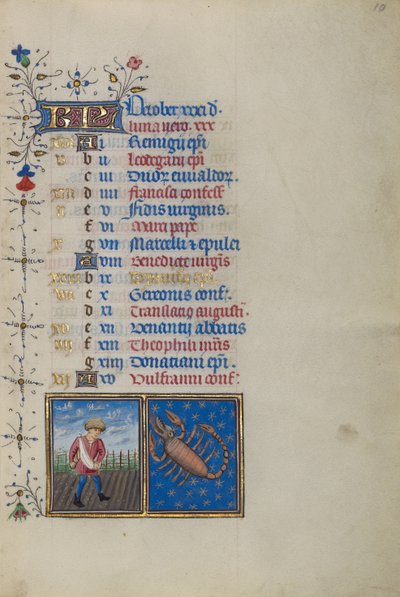 10
KL October xxxi d.
luna vero. xxx
xvi A i Remigij epi
v b ii Leodegarij epi
c iii Duor ewaldor.
xiii d iiii Francisci confess
ii e v Fidis virginis.
f vi Marci pape
x g vii Marcelli & apulei
A viii Benedicte virgis
xviii b ix
vii c x Gereonis conf.
d xi Translatio augusti.
xv e xii Venantij abbatis
iiii f xiii Theophili mris
g xiiii Donatiani epi.
xii A xv Vulfranni conf.